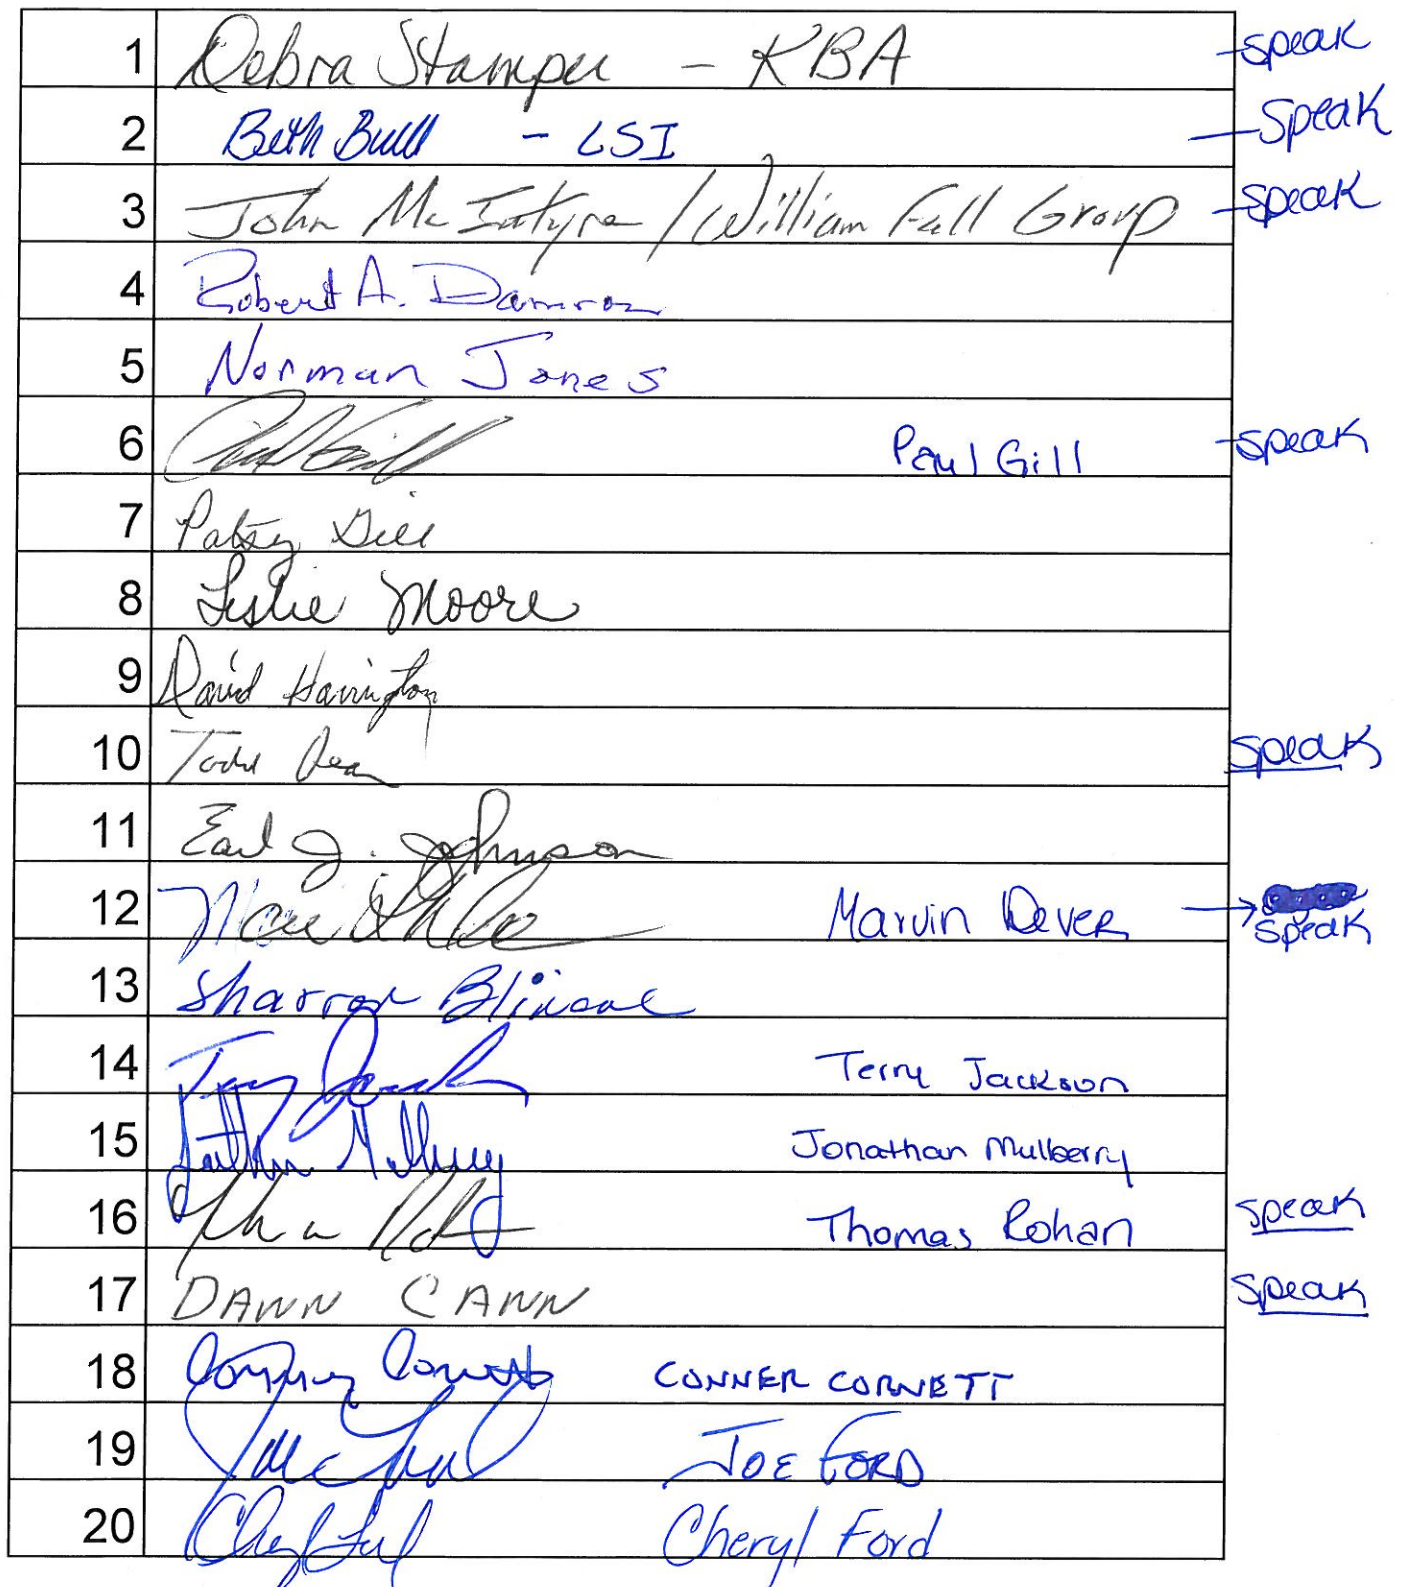 1 Debra Stamper - KBA - speak
2 Beth Bull - LSI - Speak
3 John McIntyre / William Fall Group - speak
4 Robert A. Damron
5 Norman Jones
6 Paul Gill Paul Gill - speak
7 Patsy Gill
8 Leslie Moore
9 David Harrington
10 Todd speak
11 Earl J. Johnson
12 Marvin Dever speak
13 Sharron
14 Terry Jackson Terry Jackson
15 Jonathan Mulberry Jonathan Mulberry
16 Thomas Rohan speak
17 DAWN CANN speak
18 CONNER CORNETT
19 JOE FORD
20 Cheryl Ford Cheryl Ford